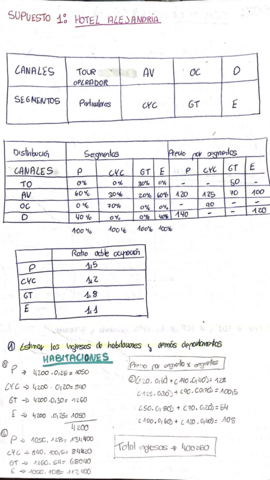 SUPUESTO 1º HOTEL ALEJANDRÍA
CANALES TOUR OPERADOR AV OC D
SEGMENTOS Particulares CYC GT E
Distribución Segmentos Precio por segmentos
CANALES P CYC GT E P CYC GT E
TO 0% 0% 0% - - 50 -
AV 60% 30% 20% 60% 120 125 70 100
OC 0% 70% 0% 0% - 90 - -
D 40% 0% 40% 140 - - 120
100% 100% 100% 100%
Ratio doble ocupación
P 1,5
CYC 1,2
GT 1,8
E 1,1
① Estimar los ingresos de habitaciones y demás departamentos
HABITACIONES
P → 4200 · 0,25 = 1050
CYC → 4200 · 0,20 = 840
GT → 4200 · 0,30 = 1260
E → 4200 · 0,25 = 1050
4200
(120 · 0,60) + (140 · 0,40) = 128
(125 · 0,30) + (90 · 0,70) = 100,5
(50 · 0,80) + (70 · 0,20) = 54
(100 · 0,60) + (120 · 0,40) = 108
P → 1050 · 128 = 134400
CYC → 840 · 100,5 = 84420
GT → 1260 · 54 = 68040
E → 1050 · 108 = 113400
Total ingresos → 400260